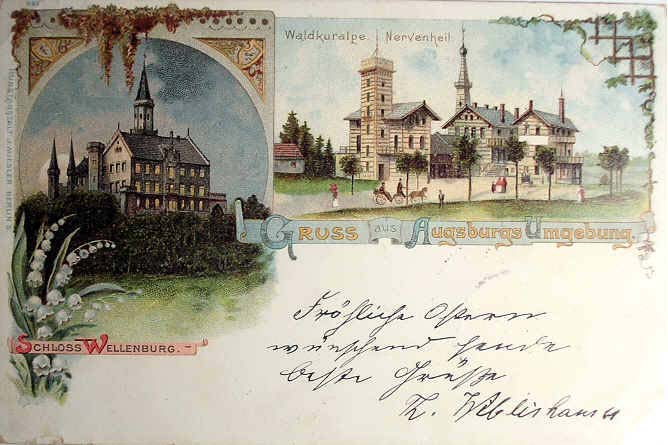 Waldkuralpe Nervenheil
GRUSS aus Augsburgs Umgebung.
SCHLOSS WELLENBURG.
Fröhliche Ostern
wünschend sende
beste Grüße